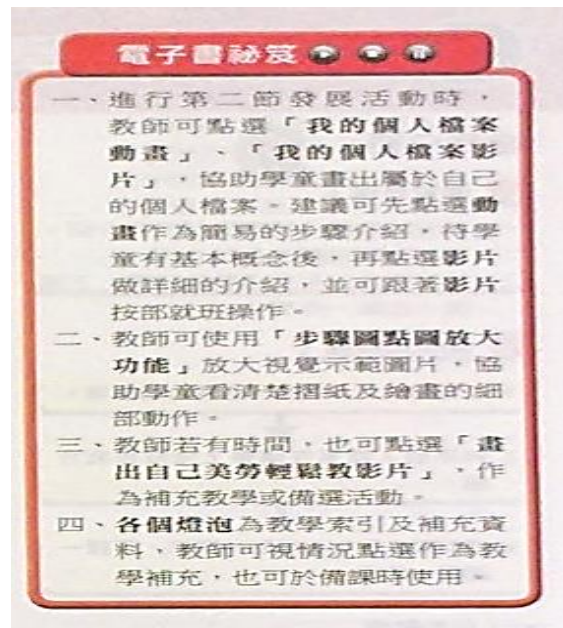 電子書祕笈
一、進行第二節發展活動時，
教師可點選「我的個人檔案
動畫」、「我的個人檔案影
片」，協助學童畫出屬於自己
的個人檔案。建議可先點選動
畫作為簡易的步驟介紹，待學
童有基本概念後，再點選影片
做詳細的介紹，並可跟著影片
按部就班操作。
二、教師可使用「步驟圖點圖放大
功能」放大視覺示範圖片，協
助學童看清楚摺紙及繪畫的細
部動作。
三、教師若有時間，也可點選「畫
出自己美勞輕鬆教影片」，作
為補充教學或備選活動。
四、各個燈泡為教學索引及補充資
料，教師可視情況點選作為教
學補充，也可於備課時使用。